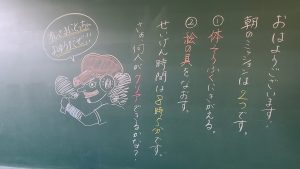 おはようございます!
朝のミッションは2つです。
①体そうふくにきがえる。
②絵の具をなおす。
せいげん時間は8時25分です。
さぁ、何人がクリアできるかな?